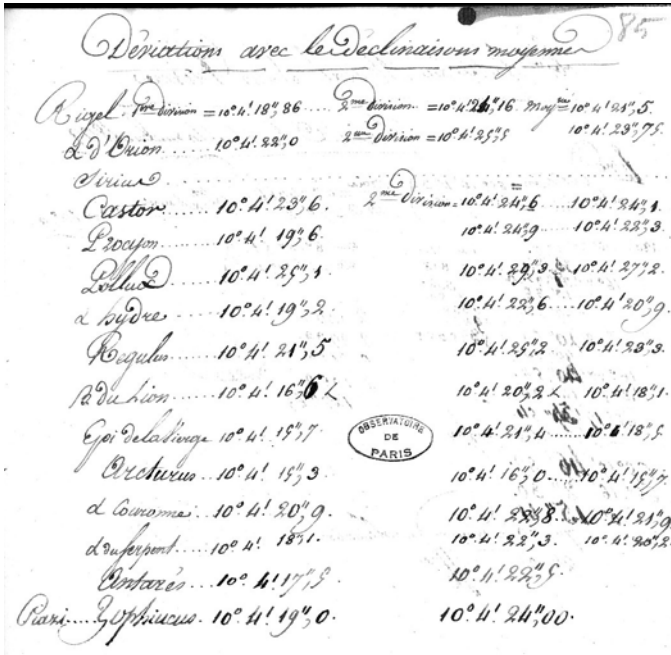 85
Déviations avec les Déclinaisons moyennes
Rigel. 1ère division = 10°.4'.18",86 .... 2me division = 10°.4'.24",16 moyne = 10°.4'.21",5.
α d'Orion ..... 10°.4'.22",0 2me division = 10°.4'.25",5 10°.4'.23",75.
Sirius
Castor ...... 10°.4'.23",6. 2me division = 10°.4'.24",6 .... 10°.4'.24",1.
Procyon ...... 10°.4'.19",6 10°.4'.24",9 .... 10°.4'.22",3.
Pollux ...... 10°.4'.25",1 10°.4'.29",3 10°.4'.27",2.
α hydre ...... 10°.4'.19",2. 10°.4'.22",6 .... 10°.4'.20",9.
Regulus ...... 10°.4'.21",5 10°.4'.25",2 .... 10°.4'.23",3.
β du Lion .... 10°.4'.16",6 10°.4'.20",2 10°.4'.18",1.
Epi de la Vierge 10°.4'.15",7 10°.4'.21",4 ...... 18",5
OBSERVATOIRE DE PARIS
Arcturus .... 10°.4'.15",3 10°.4'.16",0 .... 10°.4'.15",7
α Couronne .. 10°.4'.20",9. 10°.4'. 10°.4'.21",9
α du serpent .... 10°.4'.18",1. 10°.4'.22",3. 10°.4'.20",2.
Antarès .... 10°.4'.17",5. 10°.4'.22",5.
Piazi .... ophiucus. 10°.4'.19",0. 10°.4'.24",00.